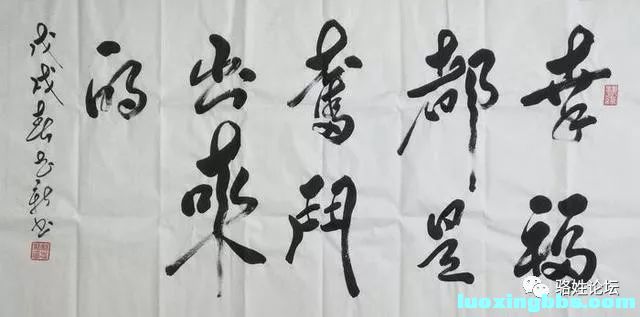 幸福
都是
奮鬥
出來
的
戊戌春书
骆姓论坛
luoxingbbs.com